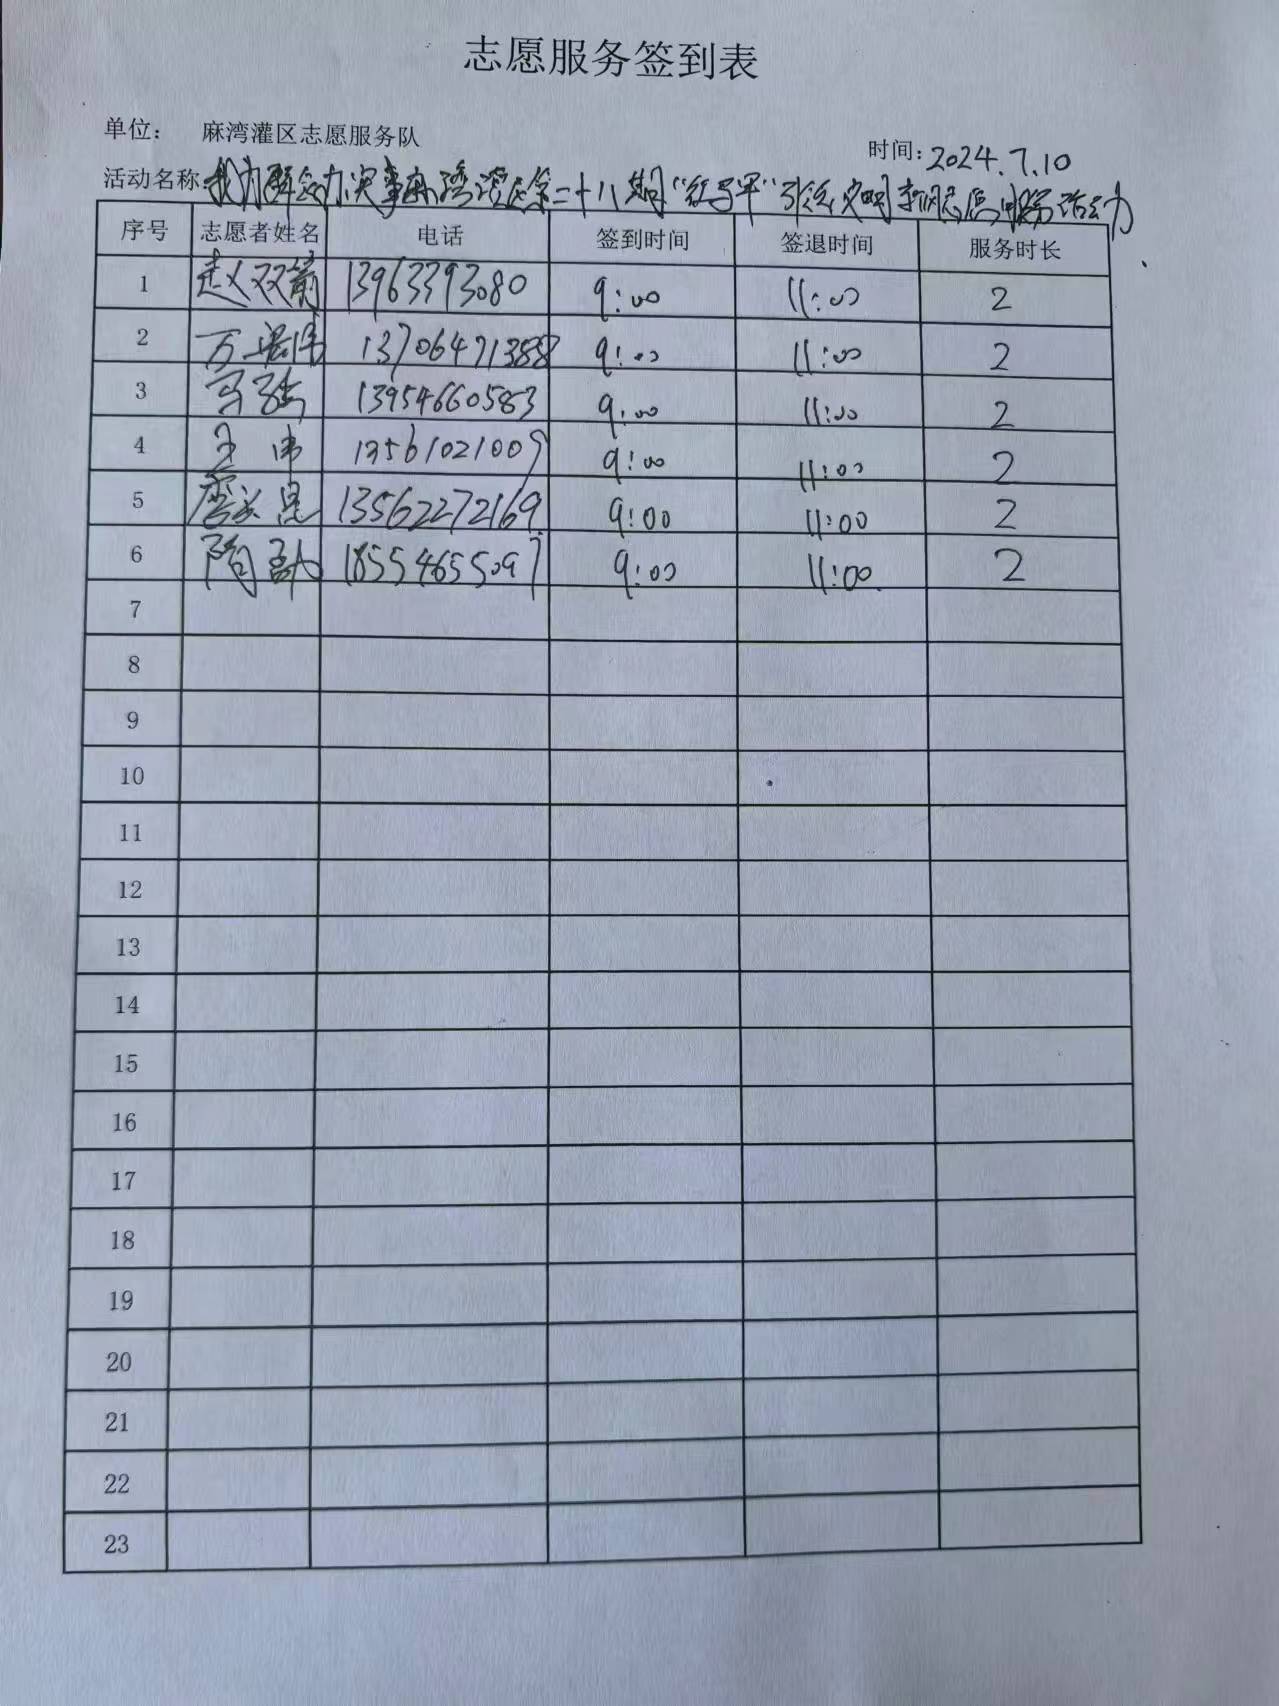 志愿服务签到表
单位： 麻湾灌区志愿服务队
时间：2024.7.10
活动名称 我为群众办实事麻湾灌区第二十八期“红马甲”引领文明新风志愿服务活动
序号 志愿者姓名 电话 签到时间 签退时间 服务时长
1 赵双箭 13963393080 9:00 11:00 2
2 万 13706471388 9:00 11:00 2
3 马 13954660583 9:00 11:00 2
4 王伟 13561021009 9:00 11:00 2
5 13562272169 9:00 11:00 2
6 隋 18554655097 9:00 11:00 2
7
8
9
10
11
12
13
14
15
16
17
18
19
20
21
22
23